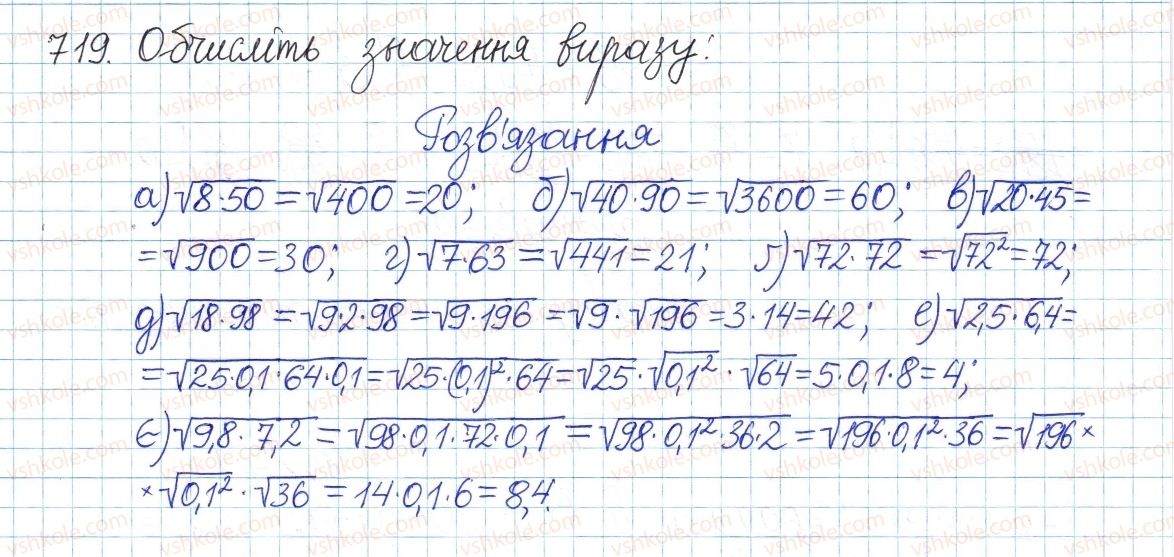 719. Обчисліть значення виразу:
Розв'язання
а) √8·50 = √400 = 20; б) √40·90 = √3600 = 60; в) √20·45 =
= √900 = 30; г) √7·63 = √441 = 21; ґ) √72·72 = √72² = 72;
д) √18·98 = √9·2·98 = √9·196 = √9 · √196 = 3·14 = 42; е) √2,5·6,4 =
= √25·0,1·64·0,1 = √25·(0,1)²·64 = √25 · √0,1² · √64 = 5·0,1·8 = 4;
є) √9,8·7,2 = √98·0,1·72·0,1 = √98·0,1²·36·2 = √196·0,1²·36 = √196 ×
× √0,1² · √36 = 14·0,1·6 = 8,4.